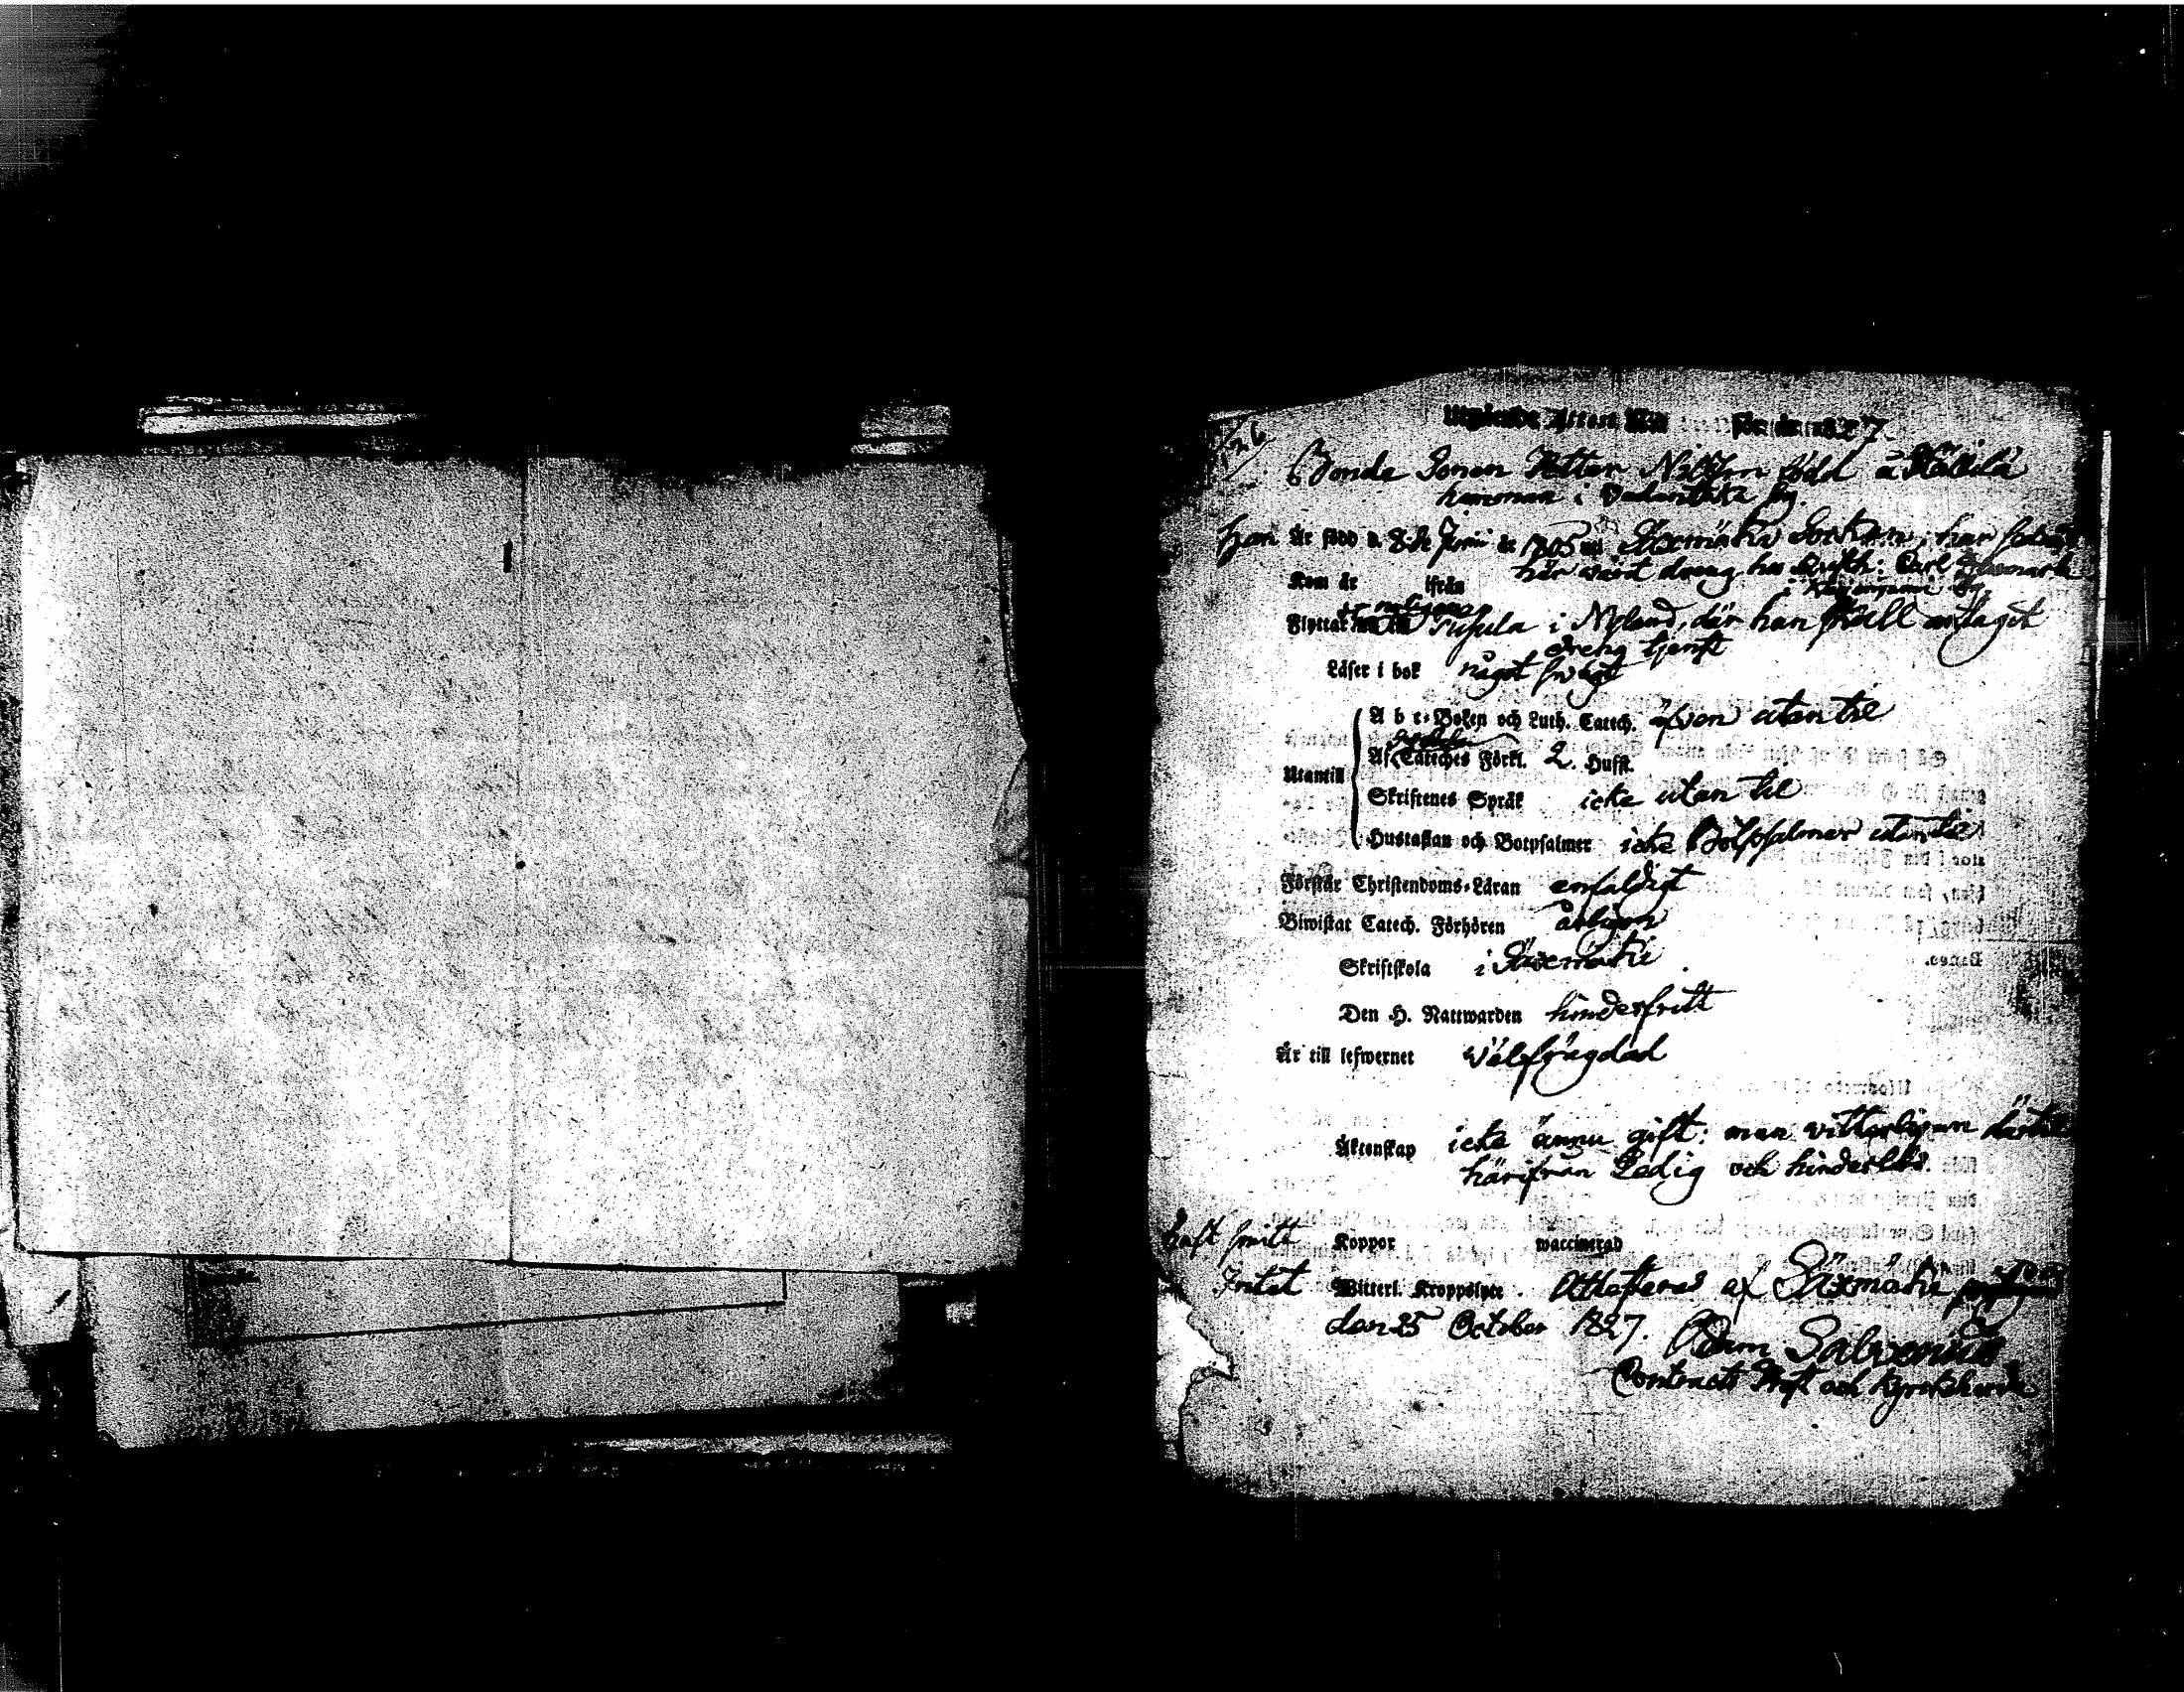 126
Utgående Attest för år 1827.
Bonde Sonen Petter född å
hemman i by.
Han Är född d. 8de Junii år 1805 uti Säxmäki Sockn, har
Kom år ifrån här wärit dräng hos Carl
i by
Flyttar nu till i Nyland, där han skall antagit
dreng tjenst
Läser i bok något swagt
A b c-Boken och Luth. Catech. äfven utan til
Utantill Af Cateches Förkl. 2. Hufst.
Skriftenes Språk icke utan til
Hustaflan och Botpsalmer icke Botpsalmer utantil
Förstår Christendoms-Läran enfaldigt
Biwistat Catech. Förhören årligen
Skriftskola i Säxemäki
Den H. Nattwarden hinderfritt
Är till lefwernet välfrägdad
Äktenskap icke ännu gift: men vitterligen
härifrån Ledig och hinderlös.
haft smitt Koppor waccinerad
Intet Witterl. Kroppslyte. Attesteras af Säxmäki
den 25 October 1827. Adam Salvenius
Contracts Prost och Kyrckoherde